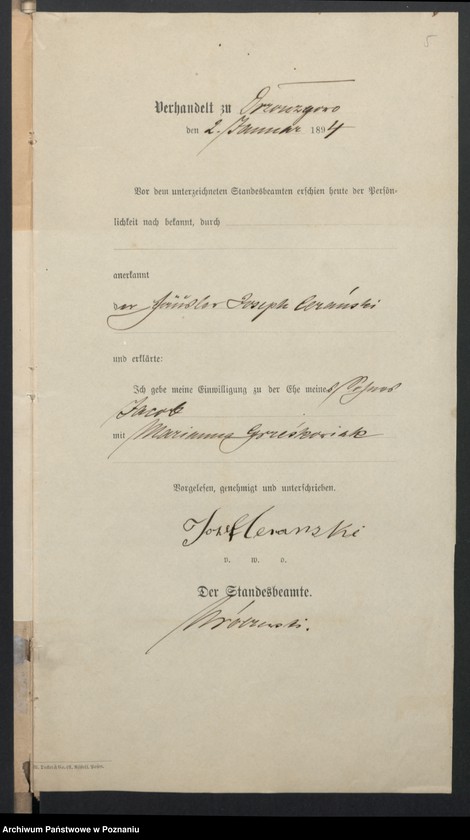 5
Verhandelt zu
den 2. Januar 1894
Vor dem unterzeichneten Standesbeamten erschien heute der Persön-
lichkeit nach bekannt, durch
anerkannt
der Häusler Joseph Cerański
und erklärte:
Ich gebe meine Einwilligung zu der Ehe meines Sohnes
Jacob
mit Marianna Grześkowiak
Vorgelesen, genehmigt und unterschrieben.
Józef Ceranski
v. w. o.
Der Standesbeamte.
Archiwum Państwowe w Poznaniu